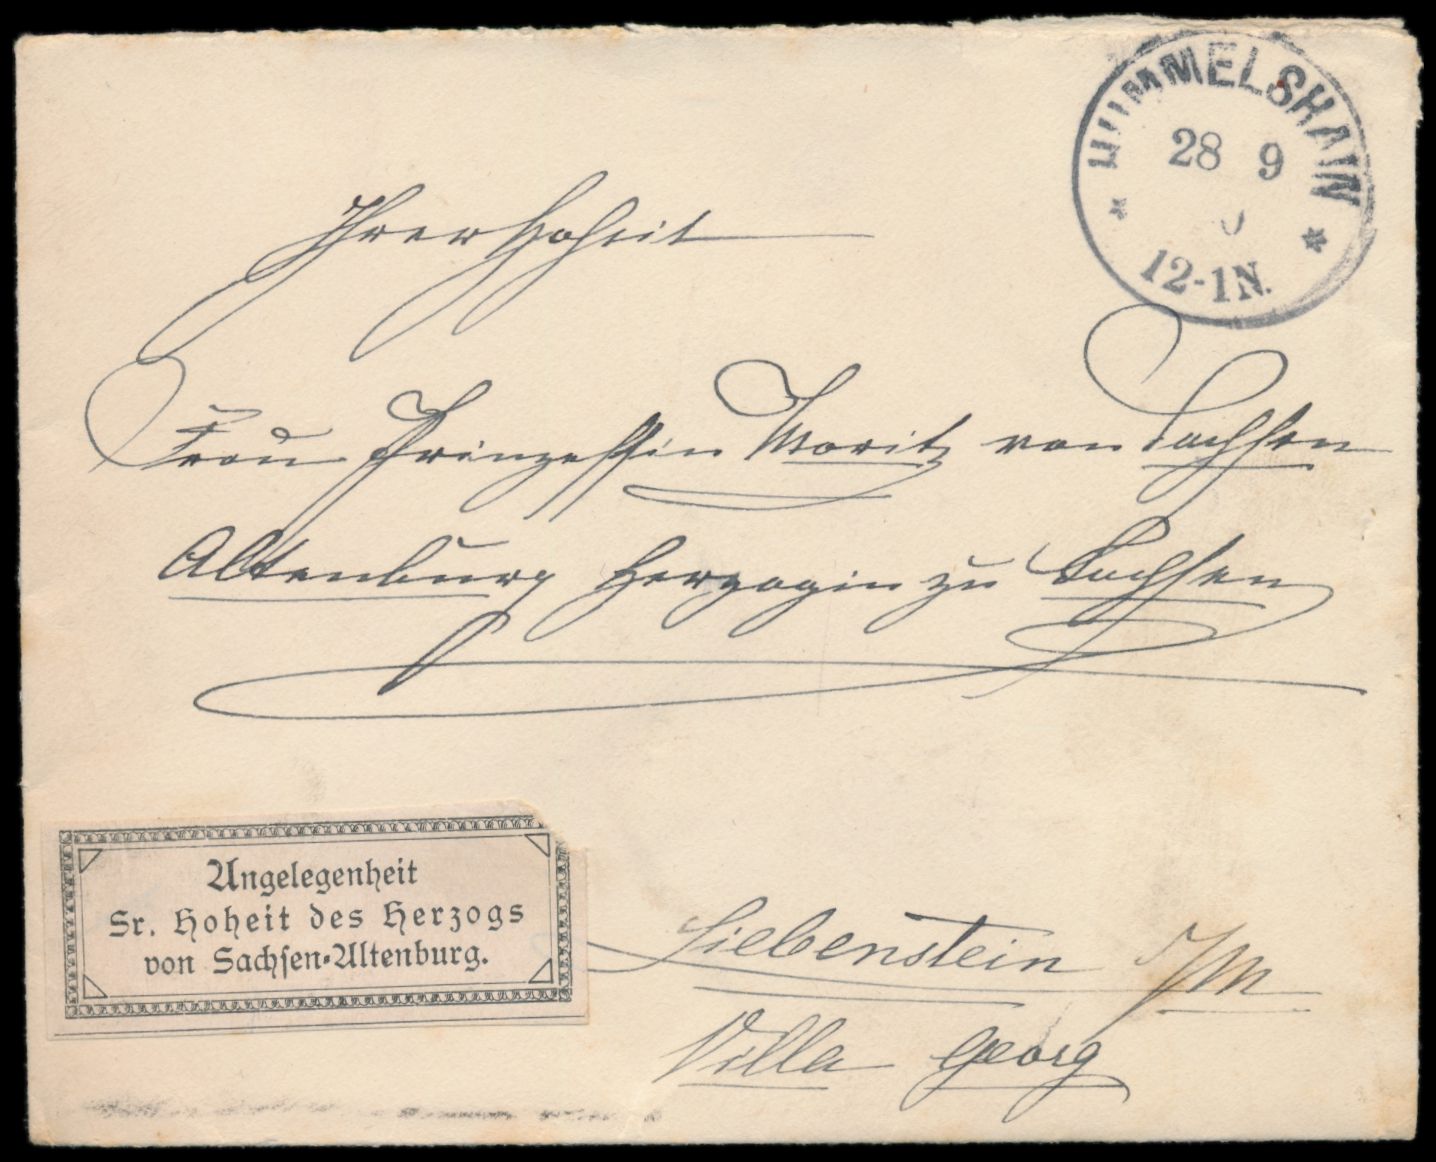 HUMMELSHAIN
28 9
12-1N.
Ihrer Hoheit
Frau Prinzessin Moritz von Sachsen
Altenburg Herzogin zu Sachsen
Angelegenheit
Sr. Hoheit des Herzogs
von Sachsen-Altenburg.
Liebenstein S/M
Villa Georg